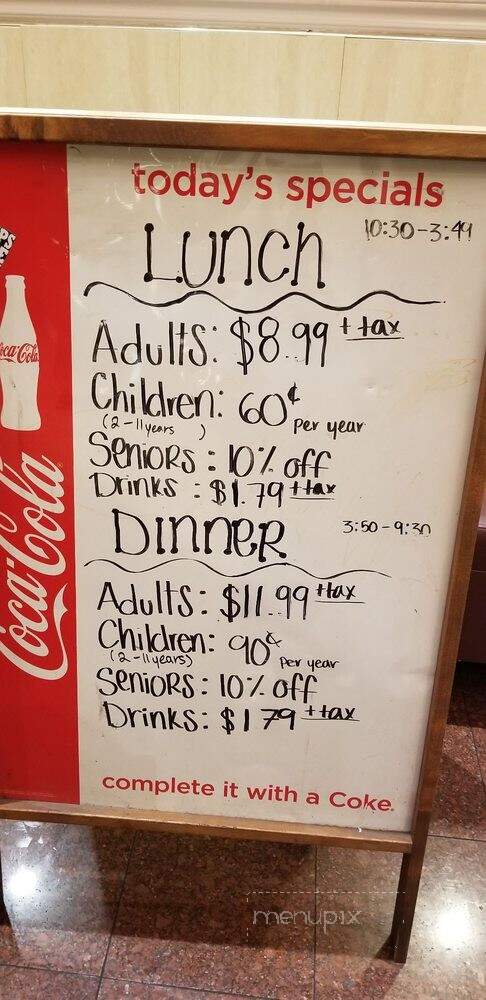 today's specials
Lunch 10:30-3:49
Adults: $8.99 + tax
Children: 60¢ per year
(2-11years )
Seniors: 10% off
Drinks: $1.79 + tax
Dinner 3:50-9:30
Adults: $11.99 + tax
Children: 90¢ per year
(2-11years)
Seniors: 10% off
Drinks: $1 79 + tax
complete it with a Coke.
Coca-Cola
Coca-Cola
menupix